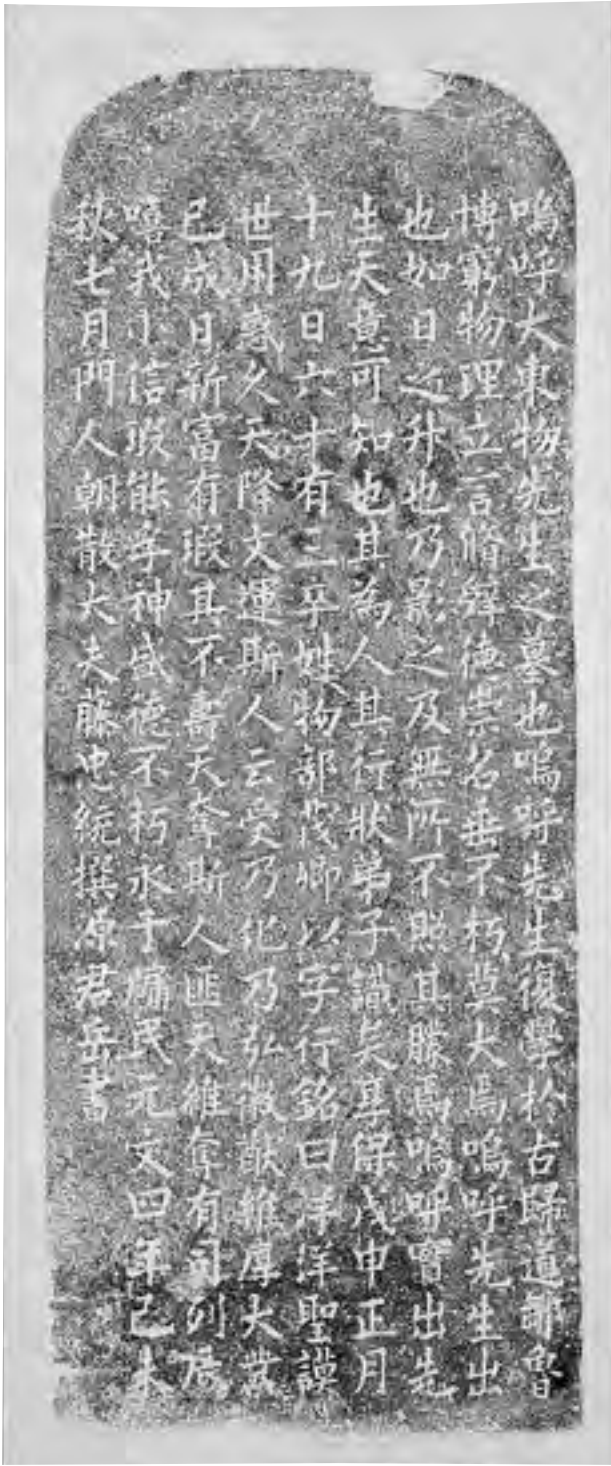 嗚呼大東物先生之墓也嗚呼先生復學於古歸道鄒魯
博窮物理立言脩辭德崇名垂不朽莫大焉嗚呼先生出
也如日之升也乃影之及無所不照其勝焉嗚呼實出先
生天意可知也其為人其行狀弟子識矣享保戊申正月
十九日六十有三卒姓物部茂卿以字行銘曰洋洋聖謨
世用惑久天降文運斯人云受乃化乃弘徽猷維厚大業
已成日新富有瑕其不壽天奪斯人匪天維奪有司列辰
噫我小信瑕能孚神盛德不朽永于牖民元文四年己未
秋七月門人朝散大夫藤忠統撰原君岳書